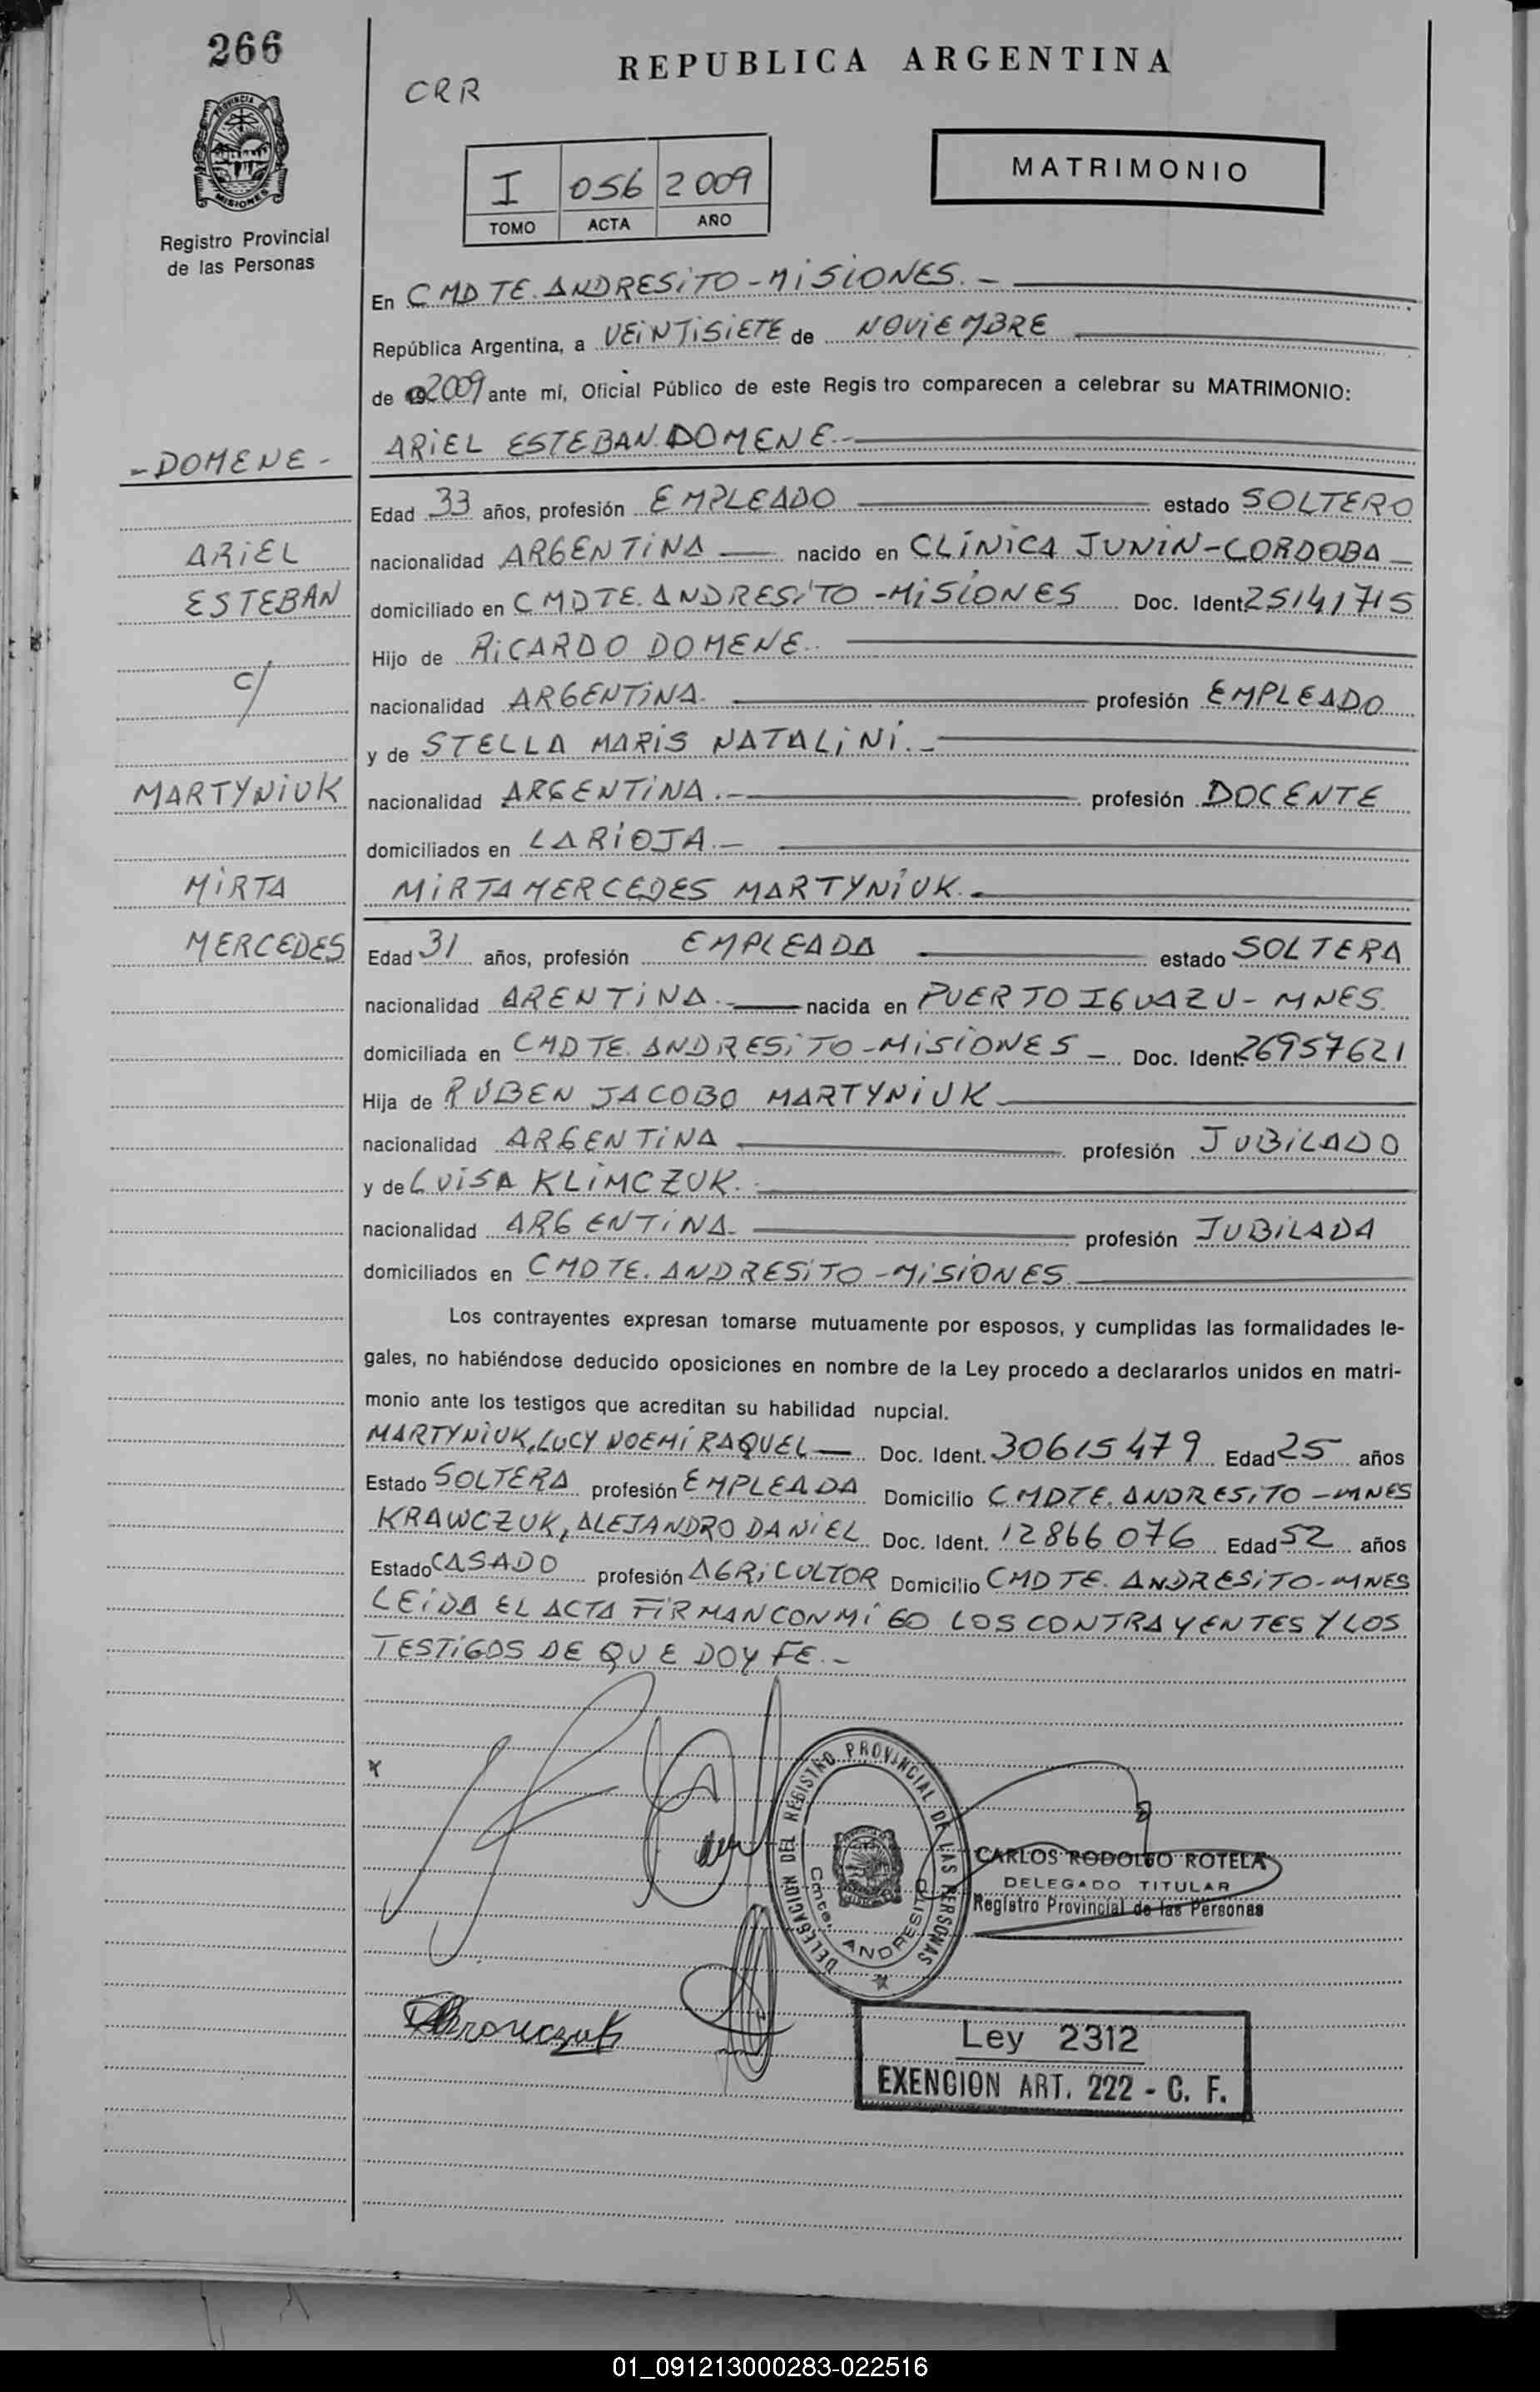 266
REPUBLICA ARGENTINA
CRR
PROVINCIA DE
MISIONES
MATRIMONIO
I 056 2009
TOMO ACTA AÑO
Registro Provincial
de las Personas
En CMDTE. ANDRESITO - MISIONES. -
República Argentina, a VEINTISIETE de NOVIEMBRE
de 2009 ante mí, Oficial Público de este Regis tro comparecen a celebrar su MATRIMONIO:
- DOMENE -
ARIEL ESTEBAN DOMENE. -
Edad 33 años, profesión EMPLEADO estado SOLTERO
ARIEL
nacionalidad ARGENTINA nacido en CLINICA JUNIN - CORDOBA
ESTEBAN
domiciliado en CMDTE. ANDRESITO - MISIONES Doc. Ident. 25141715
Hijo de RICARDO DOMENE.
c/
nacionalidad ARGENTINA. profesión EMPLEADO
y de STELLA MARIS NATALINI. -
MARTYNIUK
nacionalidad ARGENTINA. - profesión DOCENTE
domiciliados en LA RIOJA. -
MIRTA
MIRTA MERCEDES MARTYNIUK. -
MERCEDES
Edad 31 años, profesión EMPLEADA estado SOLTERA
nacionalidad ARENTINA. - nacida en PUERTO IGUAZU - MNES.
domiciliada en CMDTE. ANDRESITO - MISIONES - Doc. Ident. 26957621
Hija de RUBEN JACOBO MARTYNIUK
nacionalidad ARGENTINA profesión JUBILADO
y de LUISA KLIMCZUK.
nacionalidad ARGENTINA - profesión JUBILADA
domiciliados en CMDTE. ANDRESITO - MISIONES
Los contrayentes expresan tomarse mutuamente por esposos, y cumplidas las formalidades le-
gales, no habiéndose deducido oposiciones en nombre de la Ley procedo a declararlos unidos en matri-
monio ante los testigos que acreditan su habilidad nupcial.
MARTYNIUK, LUCY NOEMI RAQUEL - Doc. Ident. 30615479 Edad 25 años
Estado SOLTERA profesión EMPLEADA Domicilio CMDTE. ANDRESITO - MNES
KRAWCZUK, ALEJANDRO DANIEL Doc. Ident. 12866076 Edad 52 años
Estado CASADO profesión AGRICULTOR Domicilio CMDTE. ANDRESITO - MNES
LEIDA EL ACTA FIRMAN CONMIGO LOS CONTRAYENTES Y LOS
TESTIGOS DE QUE DOY FE. -
DELEGACION DEL REGISTRO PROVINCIAL DE LAS PERSONAS
Cmte. ANDRESITO
CARLOS RODOLFO ROTELA
DELEGADO TITULAR
Registro Provincial de las Personas
Ley 2312
EXENCION ART. 222 - C. F.
01_091213000283-022516